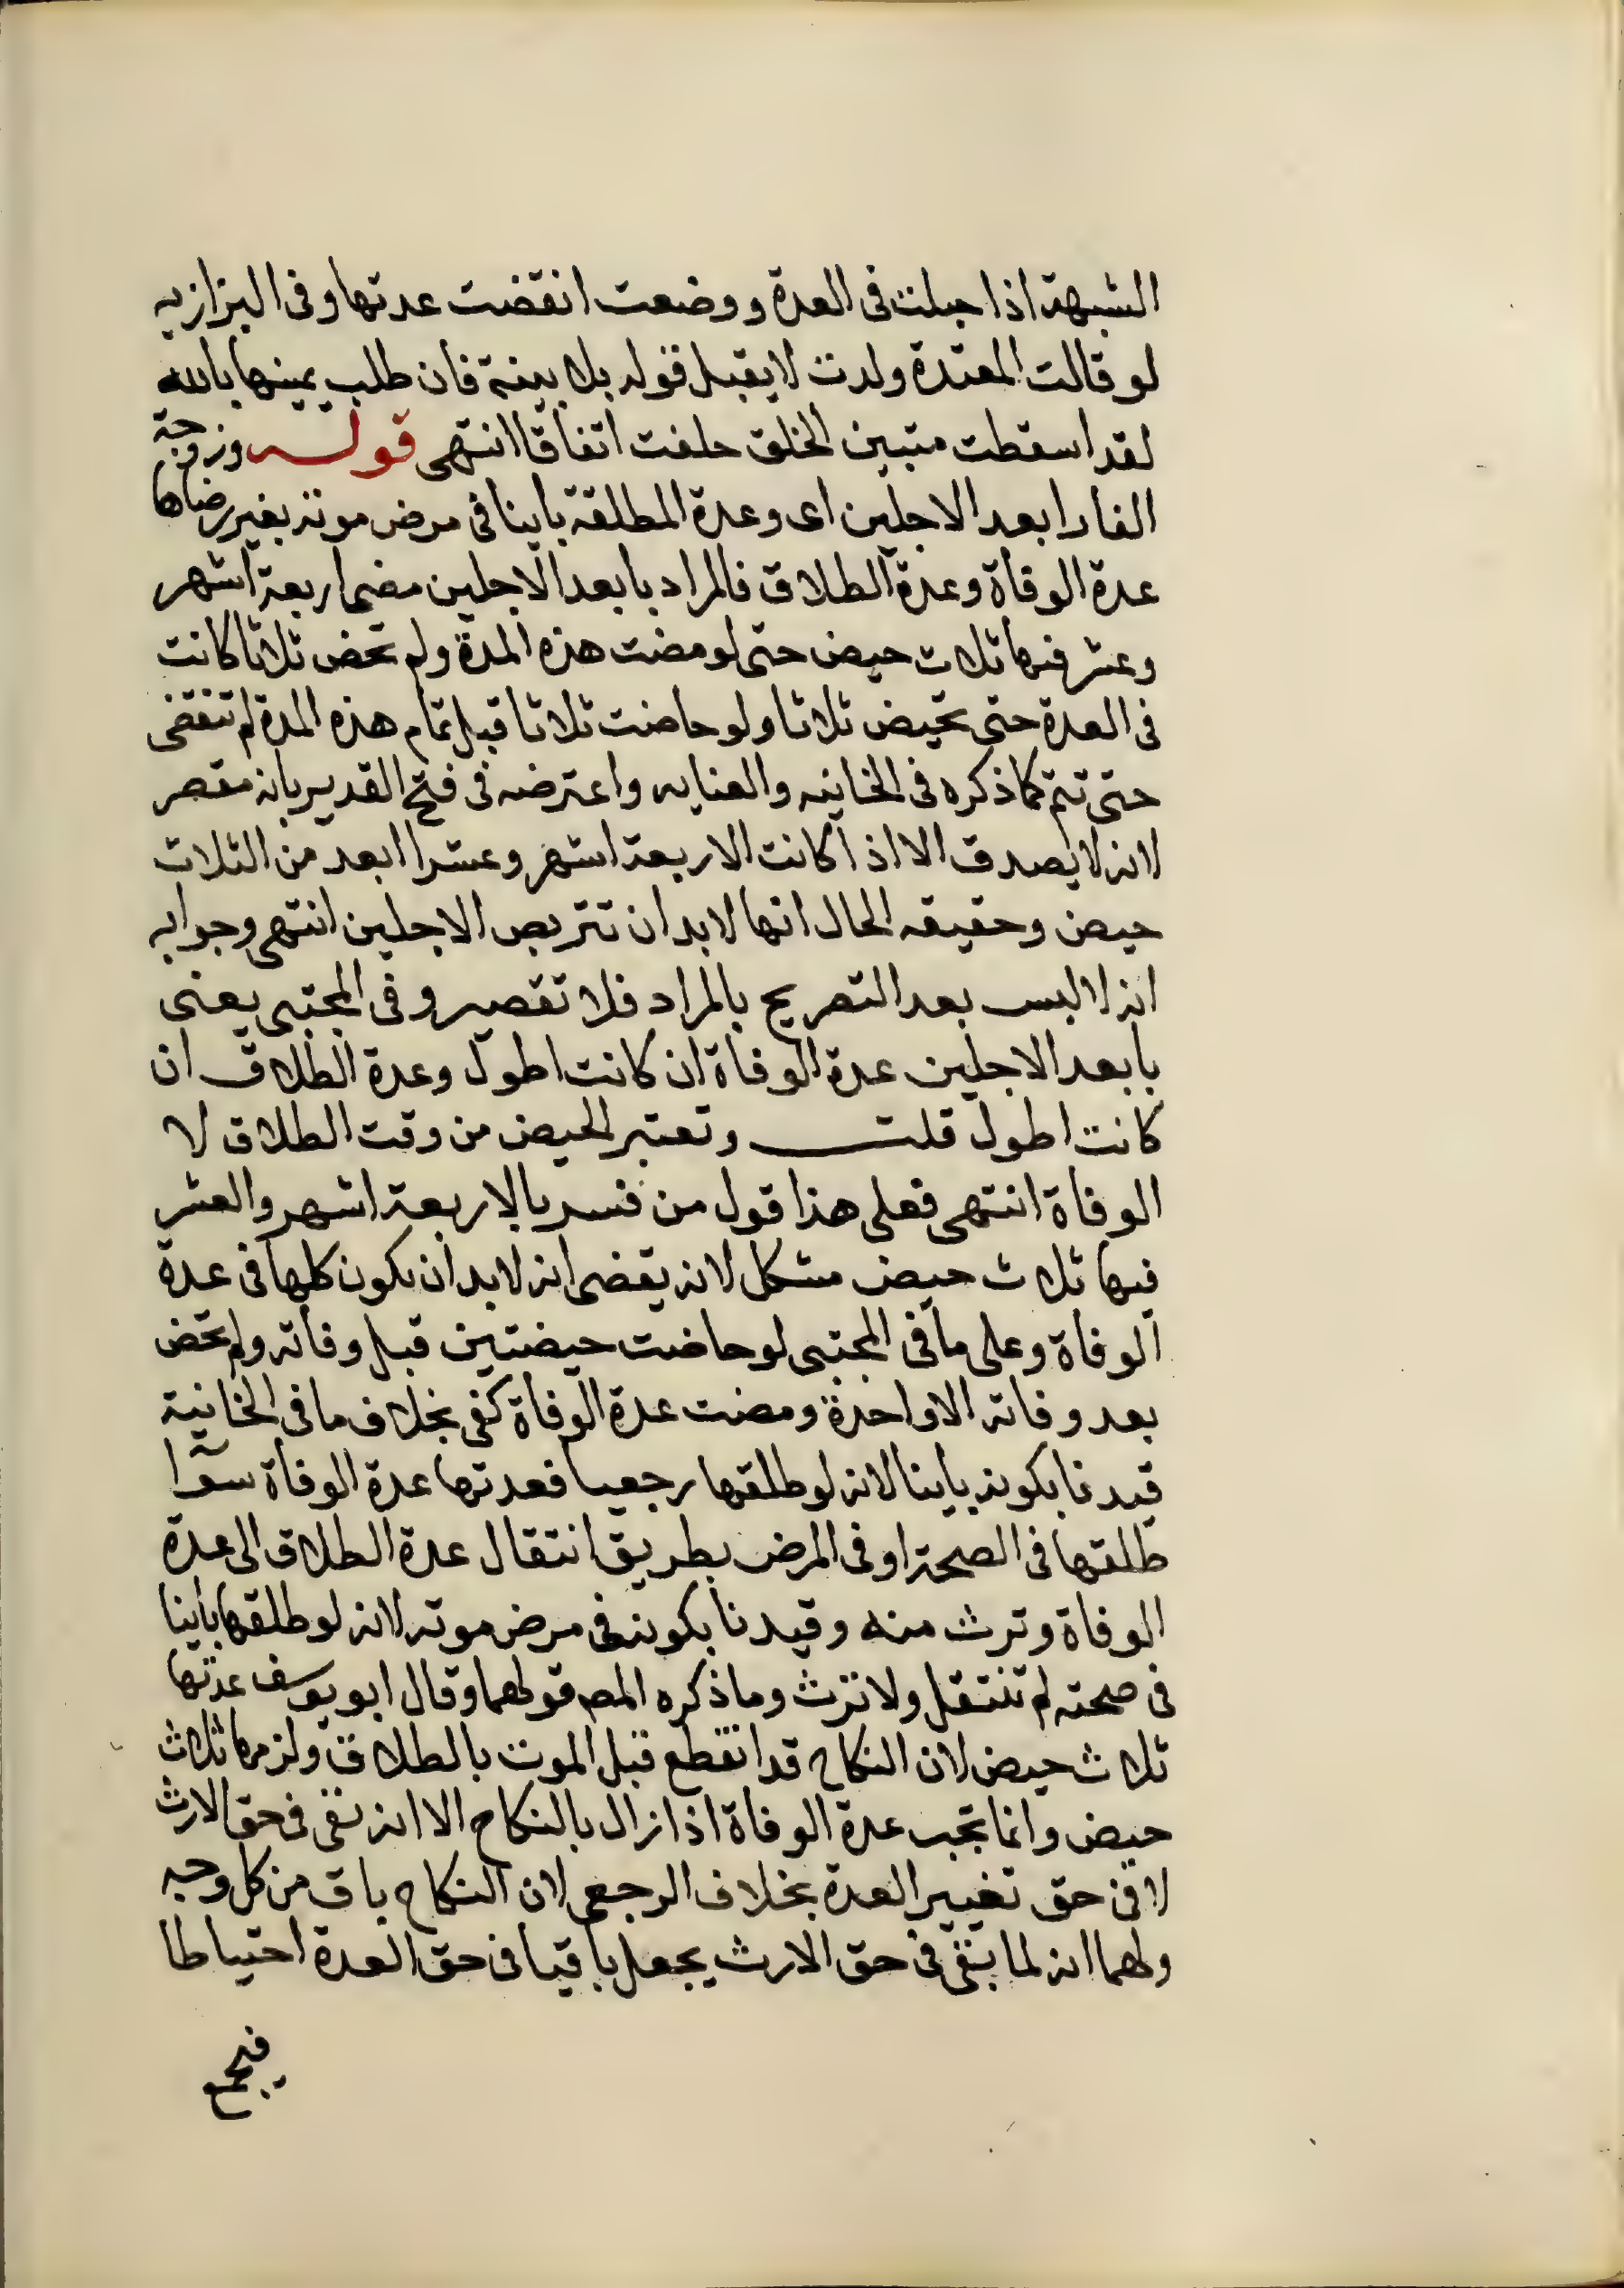 الشبهة اذا حبلت فى العدة ووضعت انقضت عدتها وفى البزازيه
لو قالت المعتدة ولدت لا يقبل قوله بلا بينة فان طلب يمينها بالله
لقد اسقطت متبين الخلق حلفت اتفاقا انتهى قوله وزوجة
الفار ابعد الاجلين اى وعدة المطلقة باينا فى مرض موته بغير رضاها
عدة الوفاة وعدة الطلاق فالمراد بابعد الاجلين مضى اربعة اشهر
وعشر فيها ثلاث حيض حتى لو مضت هذه المدة ولم تحض ثلاثا كانت
فى العدة حتى تحيض ثلاثا ولو حاضت ثلاثا قبل تمام هذه المدة لم تنقضى
حتى تتم كما ذكره فى الخانيه والعنايه واعترضه فى فتح القدير بانه مقصر
لانه لا يصدق الا اذا كانت الاربعة اشهر وعشرا ابعد من الثلاث
حيض وحقيقه الحال انها لابد ان تتربص الاجلين انتهى وجوابه
انه لا لبس بعد التصريح بالمراد فلا تقصير وفى المجتبى يعنى
بابعد الاجلين عدة الوفاة ان كانت اطول وعدة الطلاق ان
كانت اطول قلت وتعتبر الحيض من وقت الطلاق لا
الوفاة انتهى فعلى هذا قول من فسر بالاربعة اشهر والعشر
فيها ثلاث حيض مشكل لانه يقضى انه لابد ان يكون كلها فى عدة
الوفاة وعلى ما فى المجتبى لو حاضت حيضتين قبل وفاته ولم تحض
بعد وفاته الا واحدة ومضت عدة الوفاة كفى بخلاف ما فى الخانية
قيدنا بكونه باينا لانه لو طلقها رجعيا فعدتها عدة الوفاة سوآ
طلقها فى الصحة او فى المرض بطريق انتقال عدة الطلاق الى عدة
الوفاة وترث منه وقيدنا بكونه فى مرض موته لانه لو طلقها باينا
فى صحته لم تنتقل ولا ترث وما ذكره المصـ قولهما وقال ابو يوسف عدتها
ثلاث حيض لان النكاح قد انقطع قبل الموت بالطلاق ولزمها ثلاث
حيض وانما تجب عدة الوفاة اذا زال بالنكاح الا انه بقى فى حق الارث
لا فى حق تغيير العدة بخلاف الرجعى لان النكاح باق من كل وجه
ولهما انه لما بقى فى حق الارث يجعل باقيا فى حق العدة احتياطا
فيجمع